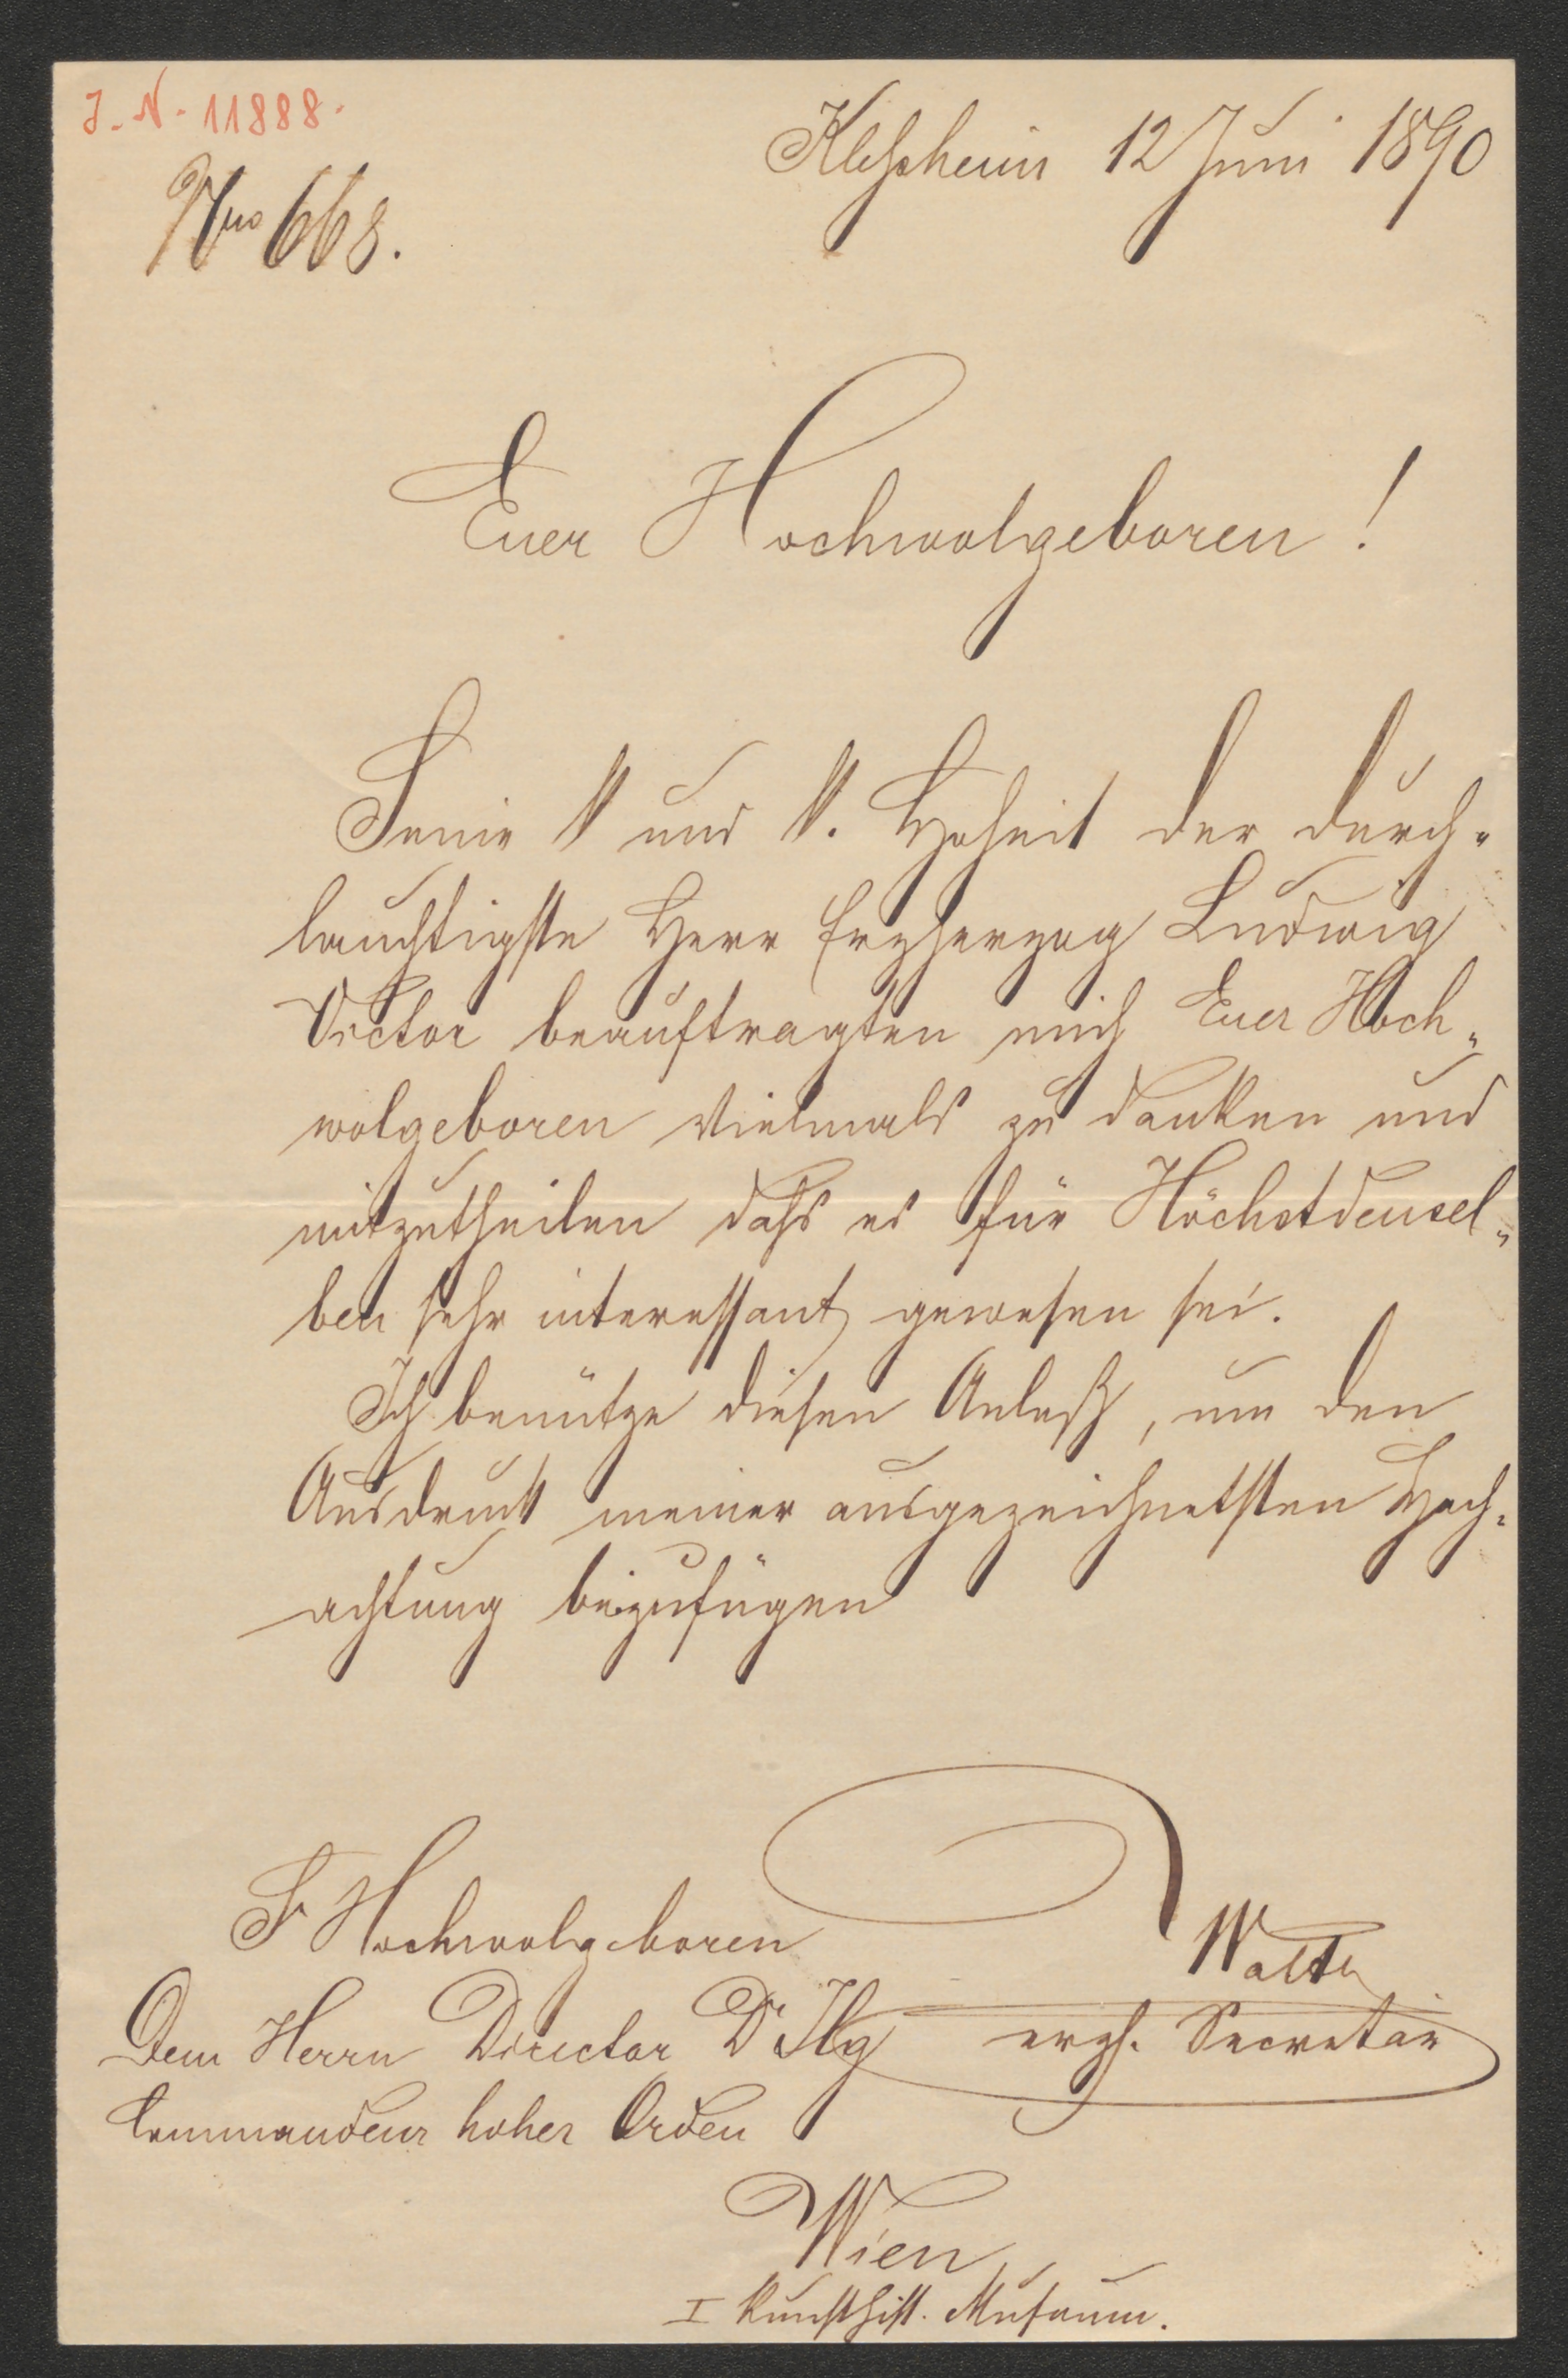 J. N. 11888.
Klesheim 12 Juni 1890
Nro 668.
Euer Hochwolgeboren!
Seine k und k. Hoheit der durch-
lauchtigste Herr Erzherzog Ludwig
Victor beauftragten mich Euer Hoch-
wolgeboren vielmals zu danken und
mitzutheilen dass es für Höchstdensel-
ben sehr interessant gewesen sei.
Ich benütze diesen Anlaß, um den
Ausdruck meiner ausgezeichnetsten Hoch-
achtung beizufügen
Sr Hochwolgeboren
Dem Herrn Director Dr Ilg
Commandeur hoher Orden
erzh. Secretär
Wien
I Kunsthist. Museum.